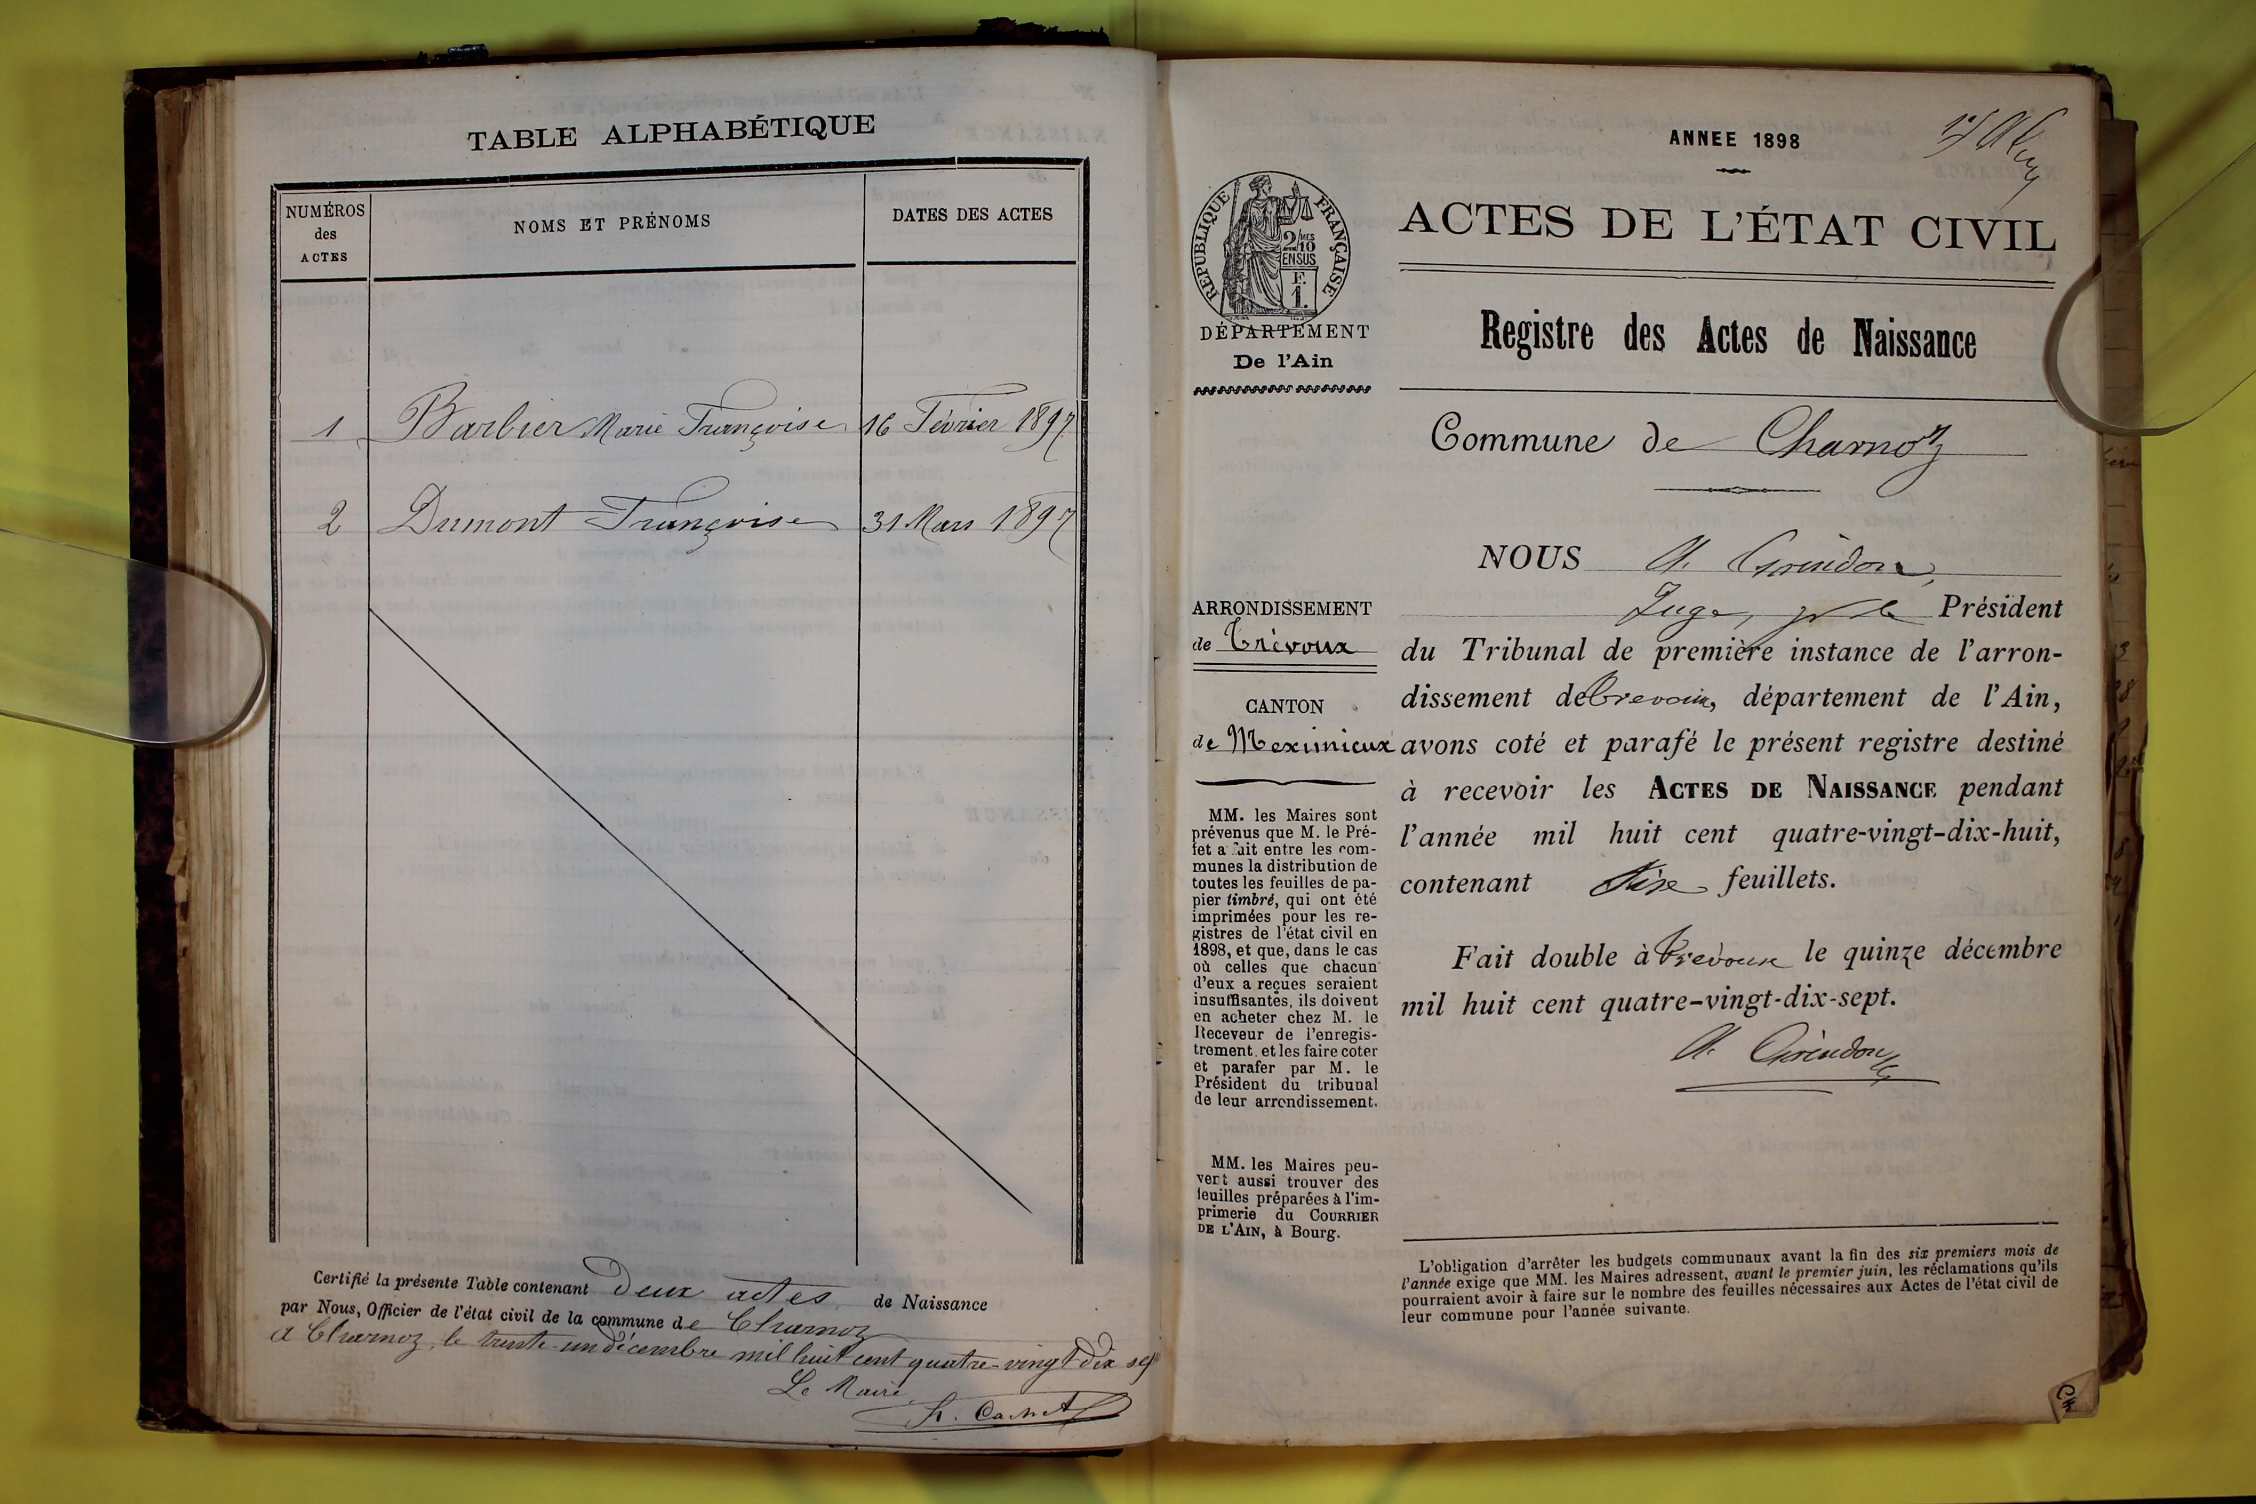 TABLE ALPHABÉTIQUE
NUMÉROS
des
ACTES
NOMS ET PRÉNOMS
DATES DES ACTES
1 Barbier Marie Françoise 16 Février 1897
2 Dumont Françoise 31 Mars 1897
Certifié la présente Table contenant deux actes de Naissance
par Nous, Officier de l'état civil de la commune de Charnoz
A Charnoz, le trente-un décembre mil huit cent quatre-vingt dix sept
Le Maire
ANNEE 1898
RÉPUBLIQUE FRANÇAISE
2/10
EN SUS
F.
1.
DÉPARTEMENT
De l'Ain
ARRONDISSEMENT
de Trévoux
CANTON
de Meximieux
MM. les Maires sont
prévenus que M. le Pré-
fet a fait entre les com-
munes la distribution de
toutes les feuilles de pa-
pier timbré, qui ont été
imprimées pour les re-
gistres de l'état civil en
1898, et que, dans le cas
où celles que chacun
d'eux a reçues seraient
insuffisantes, ils doivent
en acheter chez M. le
Receveur de l'enregis-
trement, et les faire coter
et parafer par M. le
Président du tribunal
de leur arrondissement.
MM. les Maires peu-
vent aussi trouver des
feuilles préparées à l'im-
primerie du COURRIER
DE L'AIN, à Bourg.
ACTES DE L'ÉTAT CIVIL
Registre des Actes de Naissance
Commune de Charnoz
NOUS A. Grindon,
Juge, pr le Président
du Tribunal de première instance de l'arron-
dissement de Trevoux, département de l'Ain,
avons coté et parafé le présent registre destiné
à recevoir les ACTES DE NAISSANCE pendant
l'année mil huit cent quatre-vingt-dix-huit,
contenant feuillets.
Fait double à Trevoux le quinze décembre
mil huit cent quatre-vingt-dix-sept.
A. Grindon
L'obligation d'arrêter les budgets communaux avant la fin des six premiers mois de
l'année exige que MM. les Maires adressent, avant le premier juin, les réclamations qu'ils
pourraient avoir à faire sur le nombre des feuilles nécessaires aux Actes de l'état civil de
leur commune pour l'année suivante.